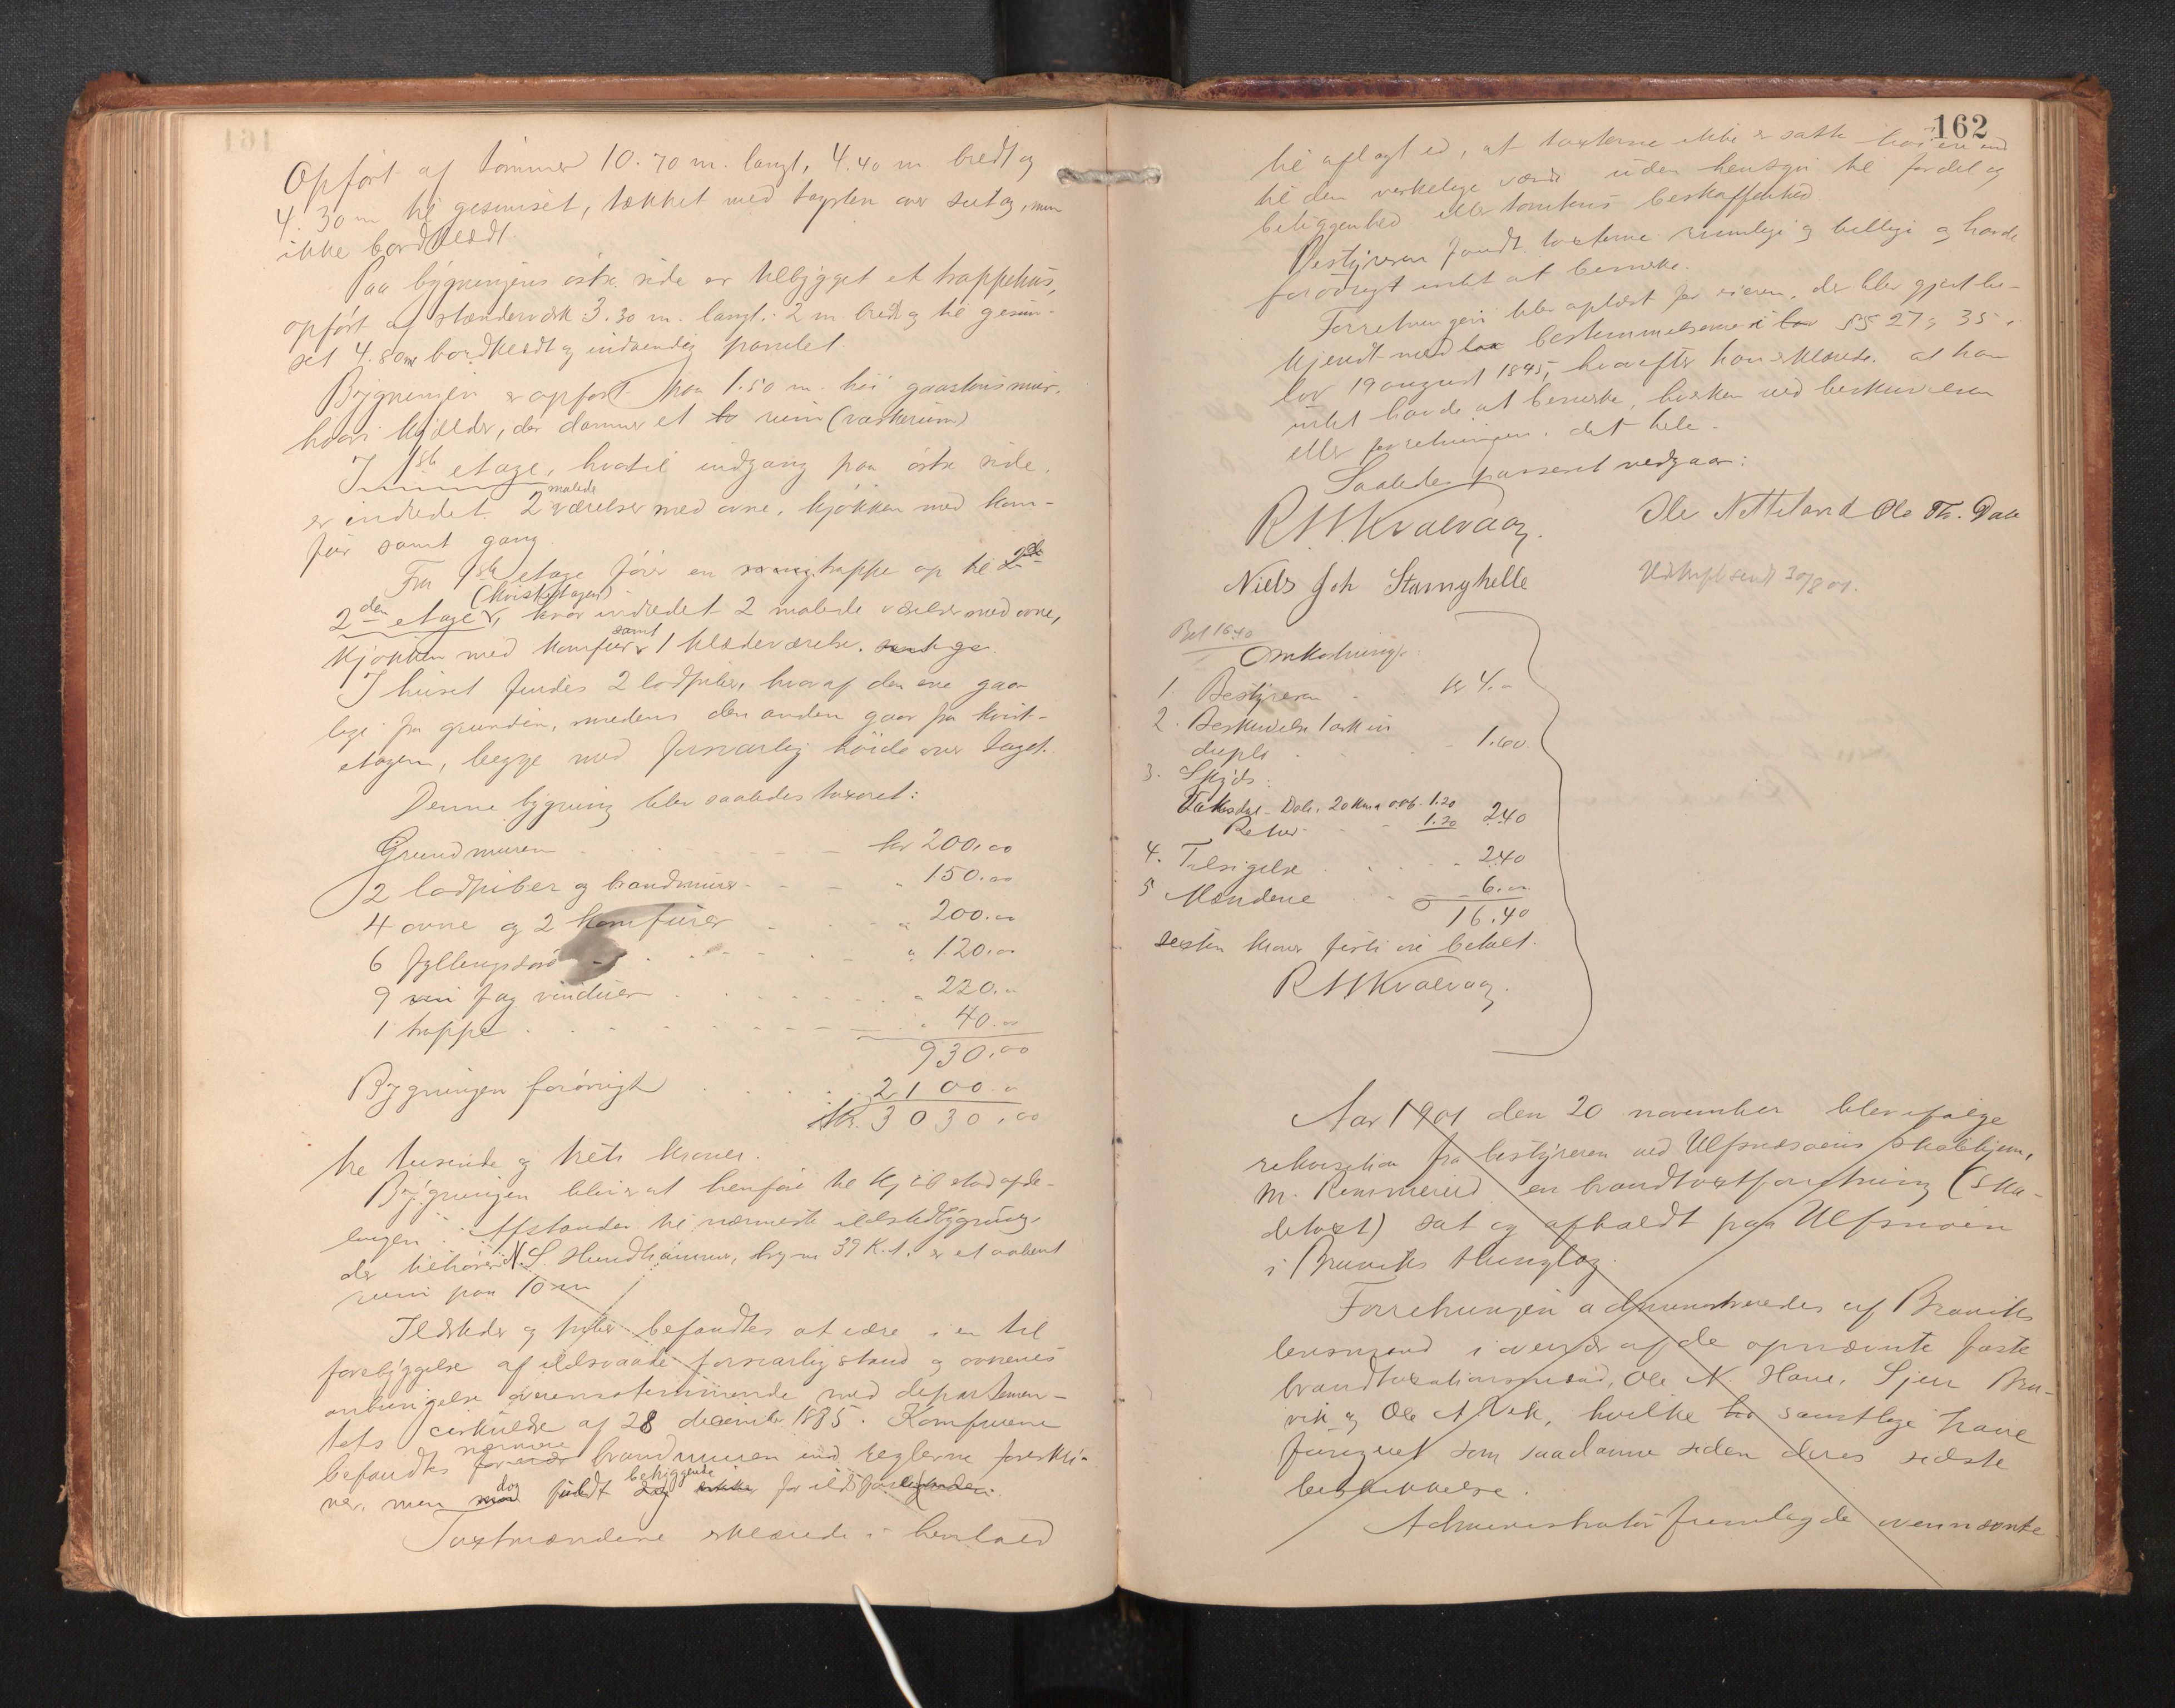 Opført af tømmer 10.70 m. langt, 4.40 m bredt og
4.30 m til gesimset, tækket med tagsten over sutag, men
ikke bordklædt.
Paa bygningens østre side er tilbygget et trappehus,
opført af stænderværk 3.30 m. langt, 2 m bredt og til gesim-
set 4.80 m bordklædt og indvendig panelet.
Bygningen er opført paa 1.50 m. høi graastensmur,
hvori kjælder, der danner et to rum (vaskerum)
I 1ste etage, hvortil indgang paa østre side,
er indredet 2 malede værelser med ovne, kjøkken med kom-
fur samt gang.
Fra 1ste etage fører en trappe op til 2den
2den etage (kvistetagen), hvor indredet 2 malede værelser med ovne,
kjøkken med komfur samt 1 klædeværelse. samt ga
I huset findes 2 lodpiber, hvoraf den ene gaar
lige fra grunden, medens den anden gaar fra kvist-
etagen, begge med forsvarlig høide over taget.
Denne bygning blev saaledes taxeret:
Grundmuren kr 200.00
2 lodpiber og brandmure " 150.00
4 ovne og 2 komfurer " 200.00
6 fyllingsdøre " 120.00
9 fag vinduer " 220.00
1 trappe " 40.00
930.00
Bygningen forøvrigt 2100.00
Kr. 3030.00
tre tusinde og treti kroner.
Bygningen bliver at henføre til Kjøbstadafde-
lingen. Afstanden til nærmeste ildstedbygning,
der tilhører N. S. Hundhammer, br. no 39 K. 1. er et aabent
rum paa 10 m
Ildsteder og piber befandtes at være i en til
forebyggelse af ildsvaade forsvarlig stand og ovnenes
anbringelse overensstemmende med departemen-
tets cirkulære af 28 december 1885. Komfurene
befandtes nærmere brandmuren end reglerne foreskri-
ver, men dog fuldt betryggende for ildsfare
Taxtmændene erklærede i henhold
162
til aflagt ed, at taxterne ikke er satte høiere end
til den virkelige værdi uden hensyn til fordel og
beliggenhed eller tomtens beskaffenhed
Bestyreren fandt taxterne rimelige og billige og havde
forøvrigt intet at bemerke.
Forretningen blev oplæst for eieren, der blev gjort be-
kjendt med bestemmelserne i lov §§ 27 og 35 i
lov 19 august 1845, hvorefter han erklærede at han
intet havde at bemerke, hverken ved beskrivelsen
eller forretningen i det hele.
Saaledes passeret vedgaar:
R M Kvalvaag. Ole Nitteland Ole Th. Dale
Niels Joh Stamghelle
Bet 16.40
Omkostninger:
1 Bestyreren kr 4.00
2. Beskrivelse 1 ark in
duplo 1.60
3. Skyds:
Takesdal - Dale, 20 km a 006. 1.20
Retur 1.20 2.40
4. Tilsigelse 2.40
5 Mændene 6.00
16.40
seksten kroner firti øre betalt.
R M Kvalvaag.
Aar 1901 den 20 november blev ifølge
rekvisition fra bestyreren ved Ulfsnæsøens skolehjem,
M. Remmerud en brandtaxtforretning (ska-
detaxt) sat og afholdt paa Ulfsnøen
i Bruviks thinglag.
Forretningen administreredes af Bruviks
lensmand i overvær af de opnævnte faste
brandtaxationsmænd, Ole N. Hane, Sjur Bru-
vik og Ole A Vik, hvilke samtlige have
fungeret som saadanne siden deres sidste
beskikkelse.
Administrator fremlagde ovennævnte